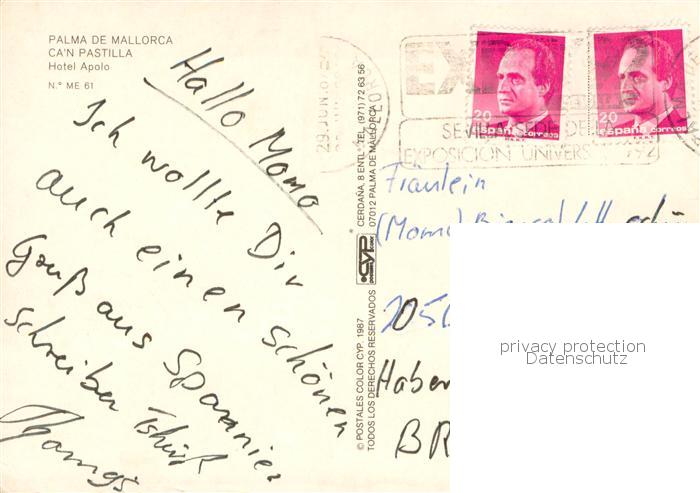 PALMA DE MALLORCA
CA'N PASTILLA
Hotel Apolo
N.° ME 61
Hallo Momo
Ich wollte Dir
auch einen schönen
Gruß aus Spanien
schreiben Tshüß
Thomas
© POSTALES COLOR CYP. 1987
TODOS LOS DERECHOS RESERVADOS
CYP
CERDAÑA, 8 ENTL.° TEL. (971) 72 63 56
07012 PALMA DE MALLORCA
29 JUN
EXPO
SEVILLA
EXPOSICION UNIVERS 92
20
españa correos
20
españa correos
Fräulein
(Momo)
Haber
BR
privacy protection
Datenschutz